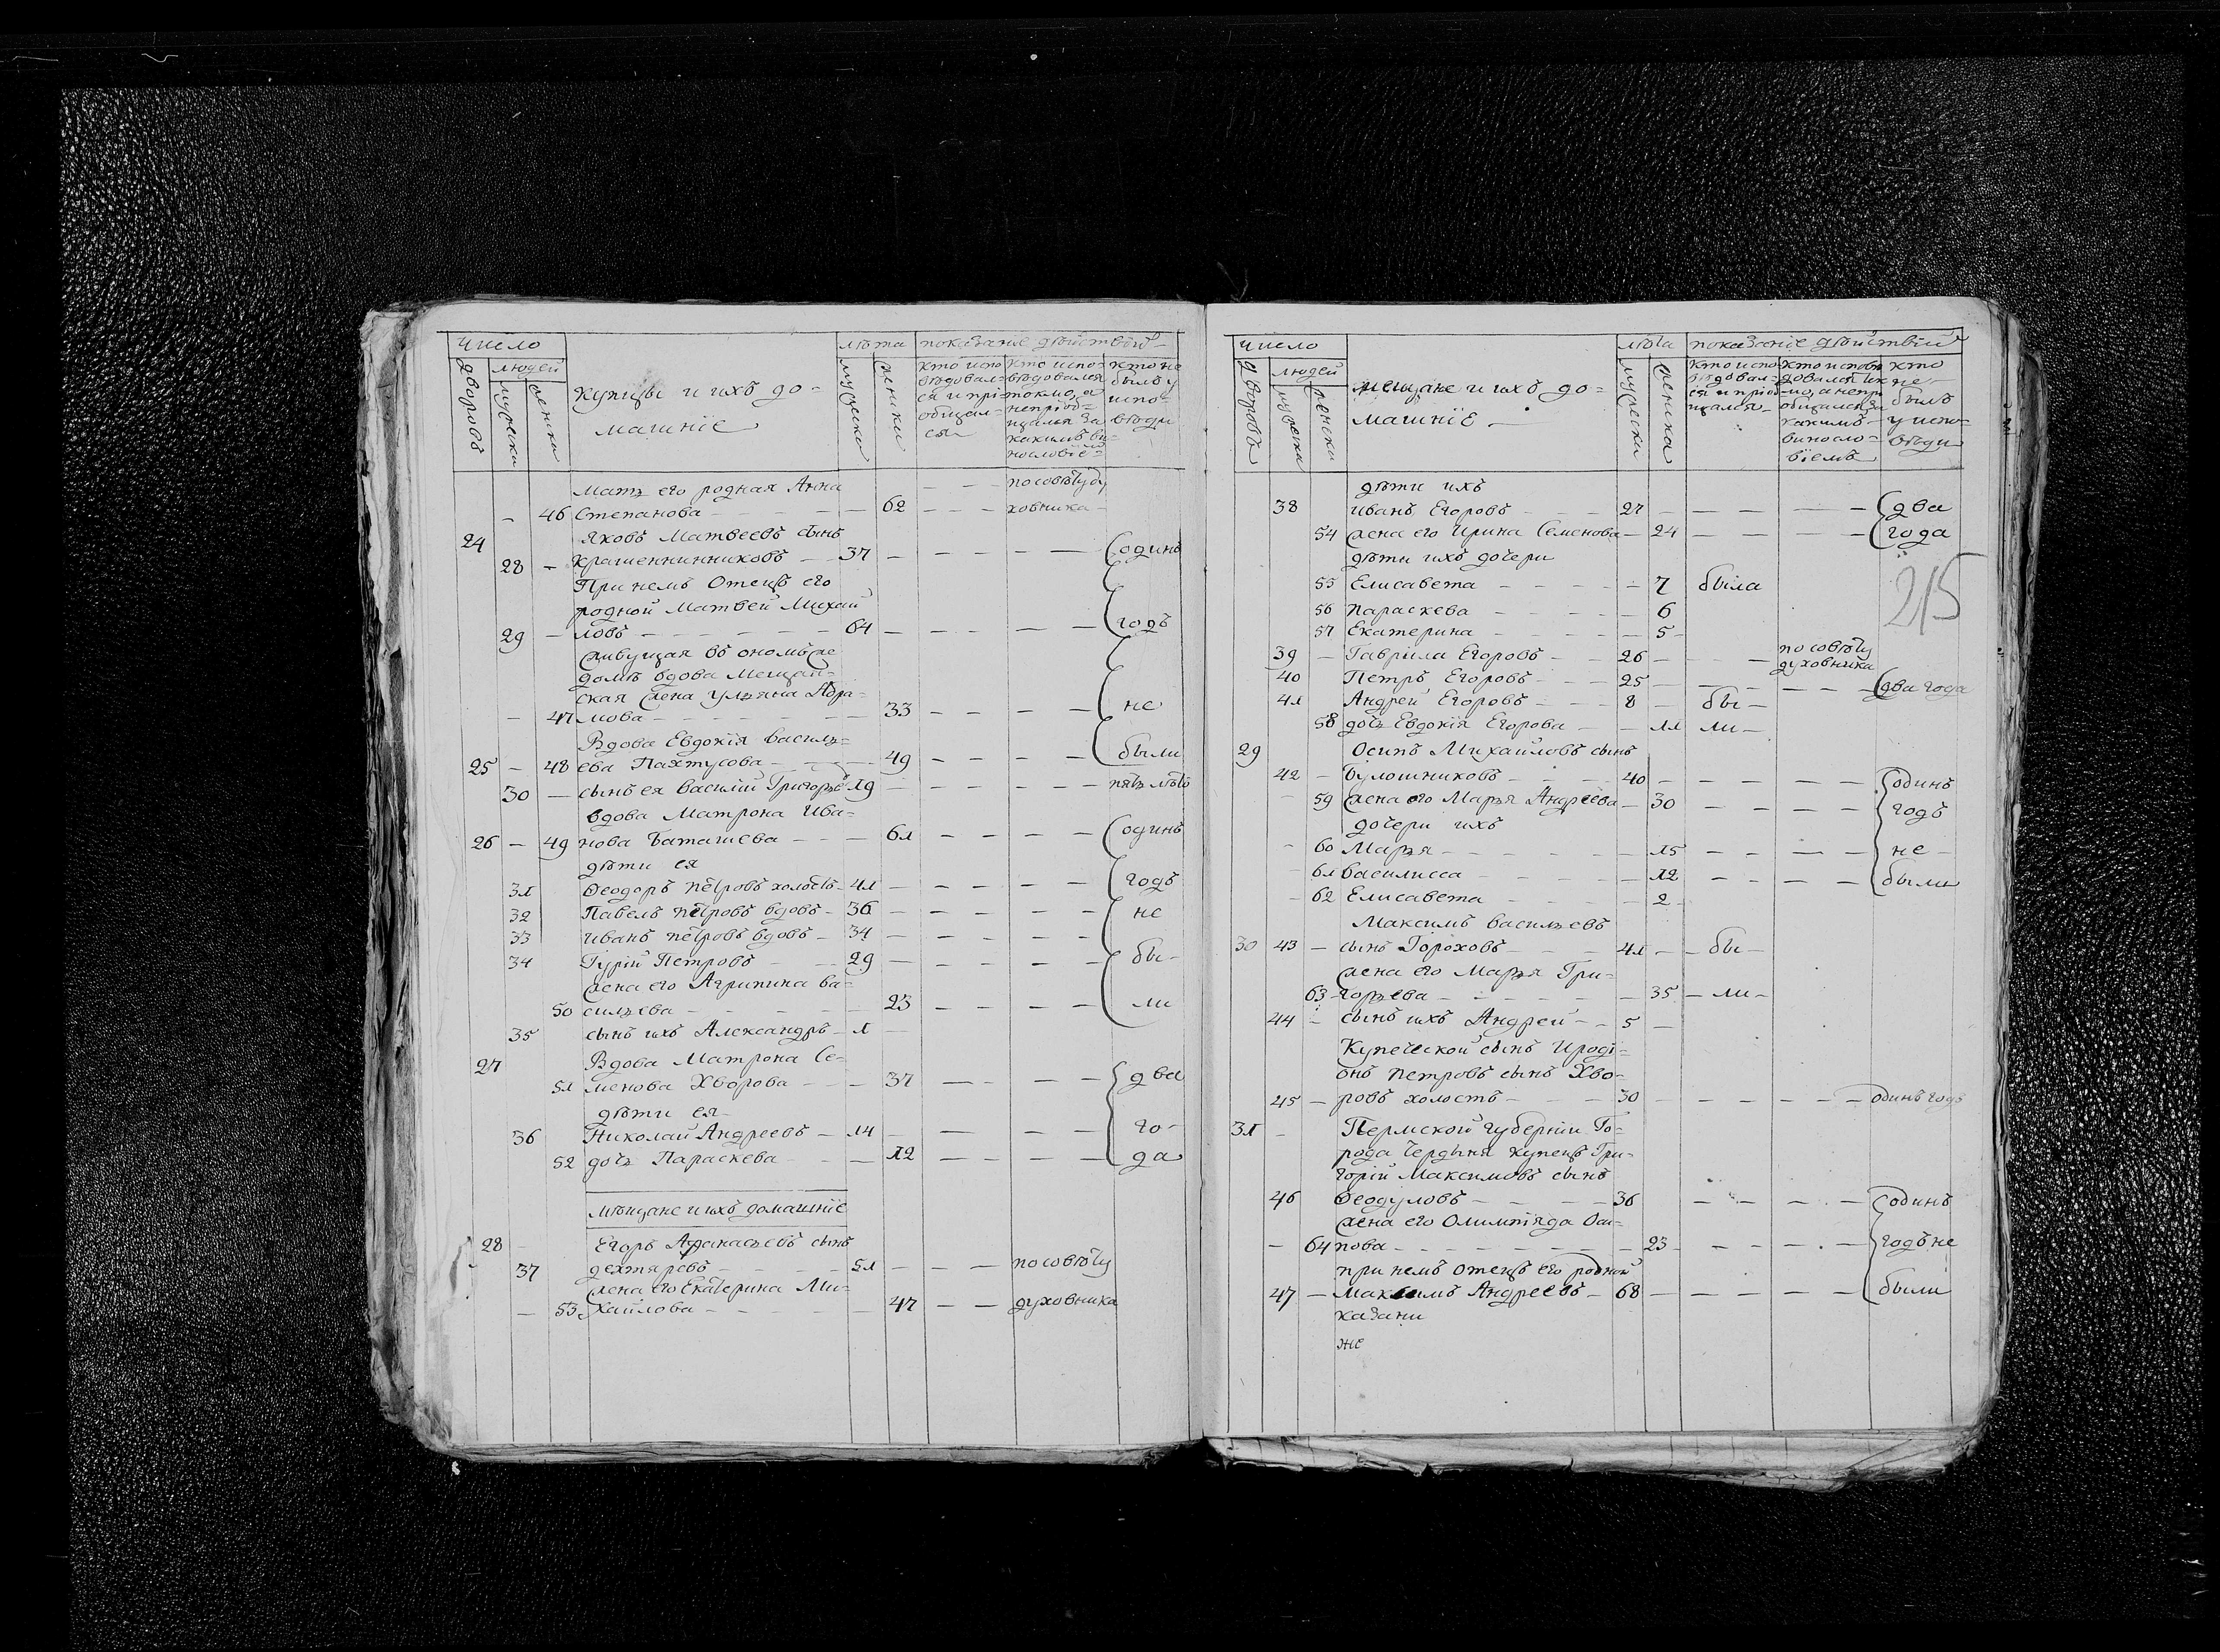 число
лѣта показание дѣйствїй
дворовъ
людей
мужеска
женска
купцы и ихъ до=
машнїе
мужеска
женски
кто испо
вѣдовал=
ся и прі=
общал=
ся
кто испо=
вѣдовался
токмо, а
непріоб=
щался за
какимъ ви=
нословїе=
кто не
былъ у
испо=
вѣди
мать его родная Анна
по совѣту ду
46 Степанова 62 ховника
24 Яковъ Матвеевъ сынъ
28 Крашенинниковъ 37 одинъ
При немъ Отецъ его
родной Матвей Михай
29 ловъ 64 годъ
живущая въ ономъ же
домѣ вдова Мещан=
ская жена Ульяна Абра=
47 мова 33 не
Вдова Евдокїя Василь=
25 48 ева Пахтусова 49 были
30 сынъ ея Василій Григорье 19 пять лѣтъ
вдова Матрона Ива=
26 49 нова Баташева 61 одинъ
дѣти ея
31 Ѳеодоръ Петровъ холостъ 41 годъ
32 Павелъ Петровъ вдовъ 36 не
33 Иванъ Петровъ вдовъ 34
34 Гурій Петровъ 29 бы-
жена его Агрипина Ва=
50 сильева 23 ли
35 сынъ ихъ Александръ 1
27 Вдова Матрона Се=
51 менова Хворова 37 два
дѣти ея
36 Николай Андреевъ 14 го-
52 дочь Параскева 12 да
мѣщане и ихъ домашнїе
28 Егоръ Афанасьевъ сынъ
37 дехтяревъ 51 по совѣту
жена его Екатерина Ми=
53 хайлова 47 духовника
число
лѣта показанїе дѣйствїй
дворовъ
людей
мужеска
женска
мещане и ихъ до=
машнїе
мужеска
женска
кто испо
вѣдовал=
ся и пріоб
щался
кто исповѣ
довался ток
мо, а непрі
общался за
какимъ
винословїемъ
кто
не
былъ
у испо=
вѣди
дѣти ихъ
38 Иванъ Егоровъ 27 два
54 жена его Ирина Семенова 24 года
дѣти ихъ дочери
55 Елисавета 7 была
215
56 Параскева 6
57 Екатерина 5
39 Гаврила Егоровъ 26 по совѣту
духовника
40 Петръ Егоровъ 25 два года
41 Андрей Егоровъ 8 бы-
58 дочь Евдокїя Егорова 11 ли-
29 Осипъ Михайловъ сынъ
42 Булошниковъ 40 одинъ
59 жена его Марья Андреева 30 годъ
дочери ихъ
60 Марья 15 не
61 Василисса 12 были
62 Елисавета 2
Максимъ Васильевъ
30 43 сынъ Гороховъ 41 бы-
жена его Марья Гри=
63 горьева 35 ли-
44 сынъ ихъ Андрей 5
Купеческой сынъ Ироді=
онъ Петровъ сынъ Хво=
45 ровъ холостъ 30 одинъ годъ
31 Пермской губернїи Го=
рода Чердыня купецъ Гри=
горій Максимовъ сынъ
46 Ѳеодуловъ 36 одинъ
жена его Олимпїяда Оси=
64 пова 23 годъ не
при немъ отецъ его родной
47 Максимъ Андреевъ 68 были
казани
же